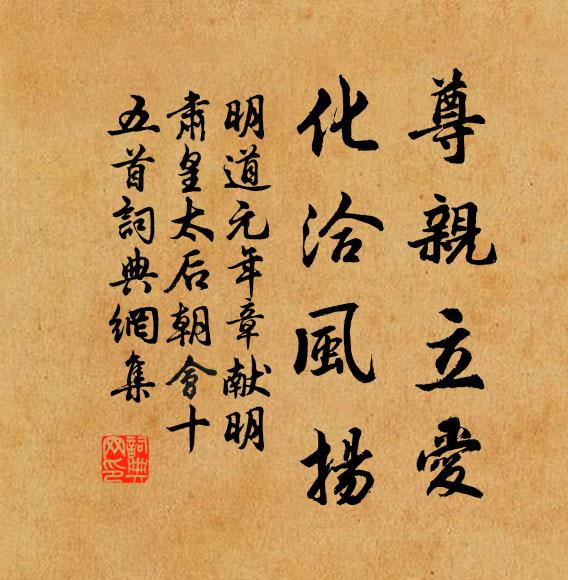 尊親立愛
化洽風揚
明道元年章献明
肅皇太后朝會十
五首詞典網集
詞典网印